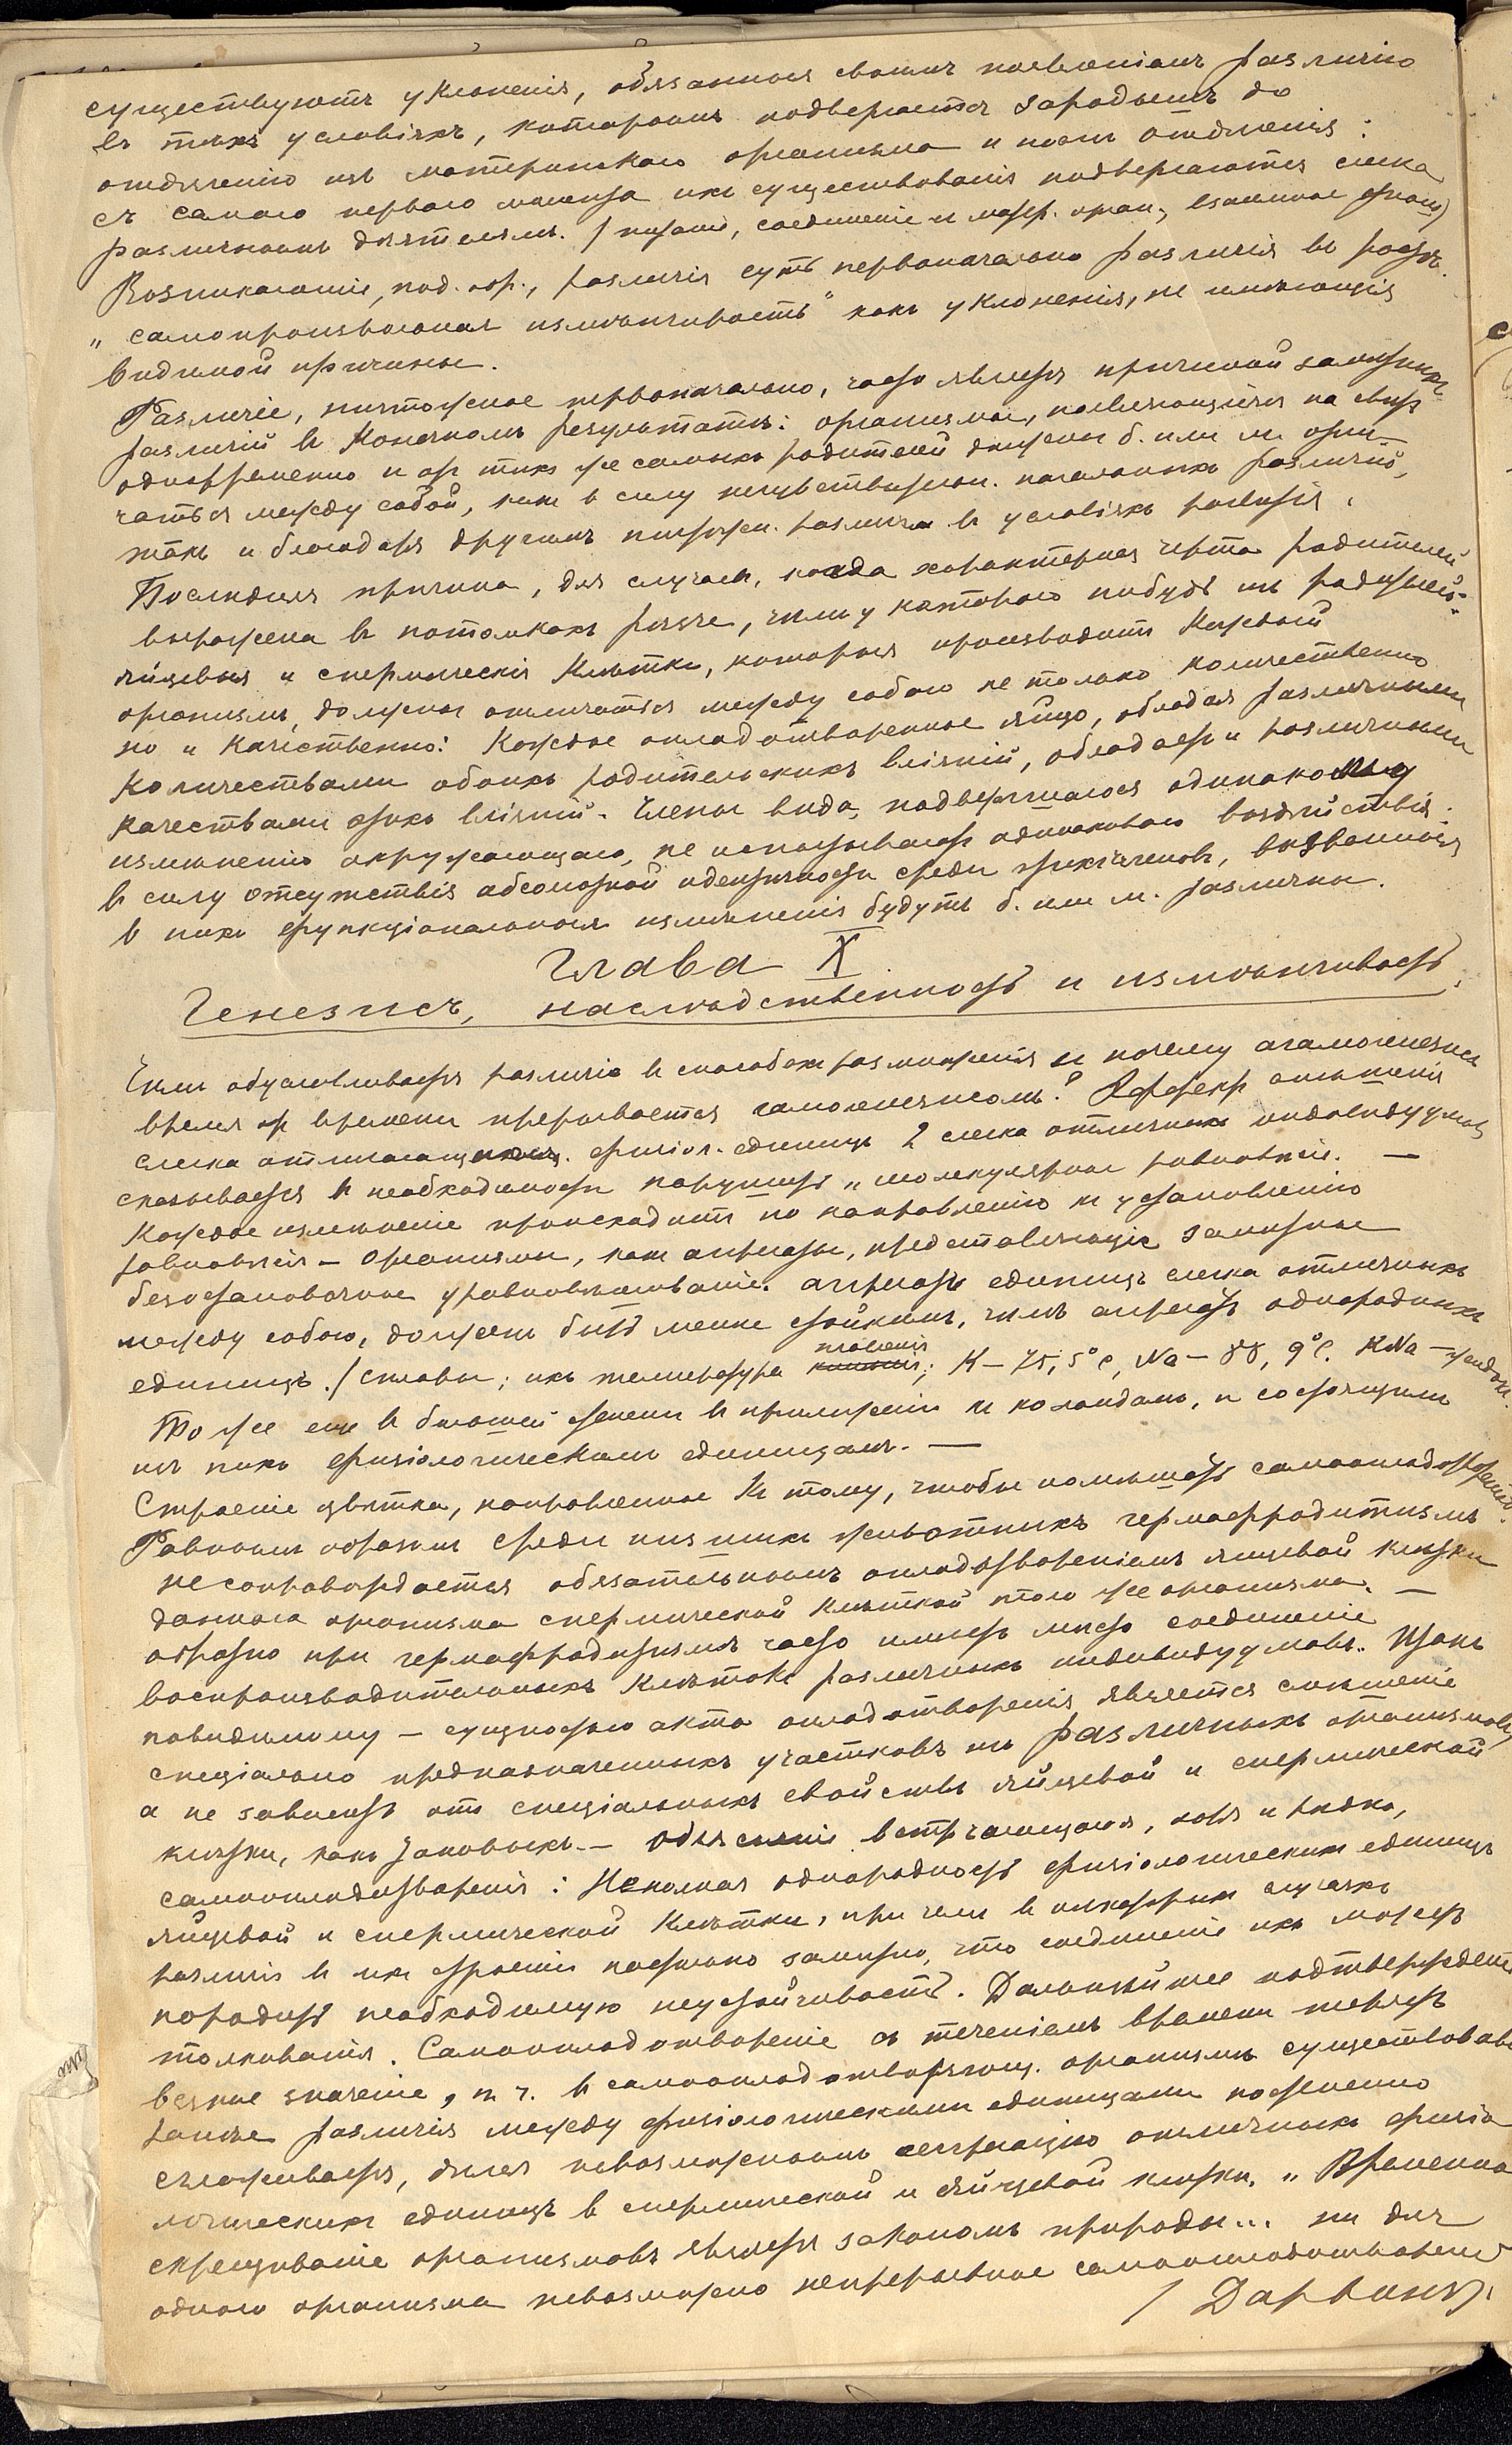 существуютъ уклоненія, обязанныя своимъ появленіемъ различію
въ тѣхъ условіяхъ, которымъ подвергается зародышъ до
отдѣленію изъ материнскаго организма и послѣ отдѣленія:
съ самаго перваго момента ихъ существованія подвергаются слегка
различнымъ дѣятелямъ. (питаніе, соединеніе и матер. орган.; взаимное)
Возникающія, под. обр., различія суть первоначально различія въ ростѣ.
„самопроизвольная измѣнчивость" какъ уклоненія, не имѣющія
видимой причины.
Различіе, ничтожное первоначально, часто является причиной замѣтныхъ
различій въ конечномъ результатѣ: организмы, появляющіеся на свѣтъ
одновременно и отъ тѣхъ же самыхъ родителей должны б. или м. отли-
чаться между собой, какъ въ силу нечувствительн. начальныхъ различій,
такъ и благодаря другимъ ничтожн. различіямъ въ условіяхъ развитія.
Послѣдняя причина, для случаевъ, когда характерная черта родителей
выражена въ потомкахъ рѣзче, чѣмъ у котораго нибудь изъ родителей:
яйцевыя и сперматическія клѣтки, которыя производитъ каждый
организмъ, должны отличаться между собою не только количественно
но и качественно: Каждое оплодотворенное яйцо, обладая различными
количествами обоихъ родительскихъ вліяній, обладаетъ и различными
качествами этихъ вліяній. Члены вида, подвергшагося одинаковому
измѣненію окружающаго, не испытываютъ одинаковаго воздѣйствія.
въ силу отсутствія абсолютной идентичности среди этихъ членовъ, вызванныя
въ нихъ функціональныя измѣненія будутъ б. или м. различны.
Глава X
Генезисъ, наслѣдственность и измѣнчивость.
Чѣмъ обусловливается различіе въ способахъ размноженія и почему агамогенезисъ
время отъ времени прерывается гамогенезисомъ? Эффектъ смѣшенія
слегка отличающихся физіол. единицъ 2 слегка отличныхъ индивидуумовъ
сказывается въ необходимости нарушить „молекулярное равновѣсіе. —
Каждое измѣненіе происходитъ по направленію къ установленію
равновѣсія — Организмы, какъ агрегаты, представляющіе замѣтное
безостановочное уравновѣшиваніе. агрегатъ единицъ слегка отличныхъ
между собою, долженъ быть менѣе стойкимъ, чѣмъ агрегатъ однородныхъ
единицъ. (Сплавы; ихъ температура плавленія; К — 75,5°С, Na — 88,9°С. KNa —
То же еще въ большей степени въ примѣненіи къ колоидамъ, и состоящимъ
изъ нихъ физіологическимъ единицамъ. —
Строеніе цвѣтка, направленное къ тому, чтобы помѣшать самооплодотворенію.
Равнымъ образомъ среди низшихъ животныхъ гермафродитизмъ
не сопровождается обязательнымъ оплодотвореніемъ яйцевой клѣтки
даннаго организма спермической клѣткой того же организма. —
обратно при гермафродитизмѣ часто имѣетъ мѣсто соединеніе
воспроизводительныхъ клѣтокъ различныхъ индивидуумовъ. Итакъ
повидимому — сущностью акта оплодотворенія является смѣшеніе
спеціально предназначенныхъ участковъ изъ различныхъ организмовъ,
а не зависитъ отъ спеціальныхъ свойствъ яйцевой и спермической
клѣтки, какъ таковыхъ. — Объясненіе встрѣчающагося, хотя и рѣдко,
самооплодотворенія: Неполная однородность физіологическихъ единицъ
яйцевой и спермической клѣтки, при чемъ въ нѣкоторыхъ случаяхъ
различіе въ ихъ строеніи настолько замѣтно, что соединеніе ихъ можетъ
породить необходимую неустойчивость. Дальнѣйшее подтвержденіе
толкованія. Самооплодотвореніе съ теченіемъ времени теряетъ
всякое значеніе, п. ч. въ самооплодотворяющ. организмѣ существовавшія
ранѣе различія между физіологическими единицами постепенно
сглаживаются, дѣлая невозможнымъ сегрегацію отличныхъ физіо
логическихъ единицъ въ спермической и яйцевой клѣткѣ. „Временное
скрещиваніе организмовъ является закономъ природы... ни для
одного организма невозможно непрерывное самооплодотвореніе
(Дарвинъ).